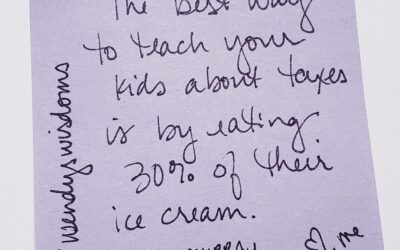 The best way
to teach your
kids about taxes
is by eating
30% of their
ice cream.
♡, me
wendyswisdoms